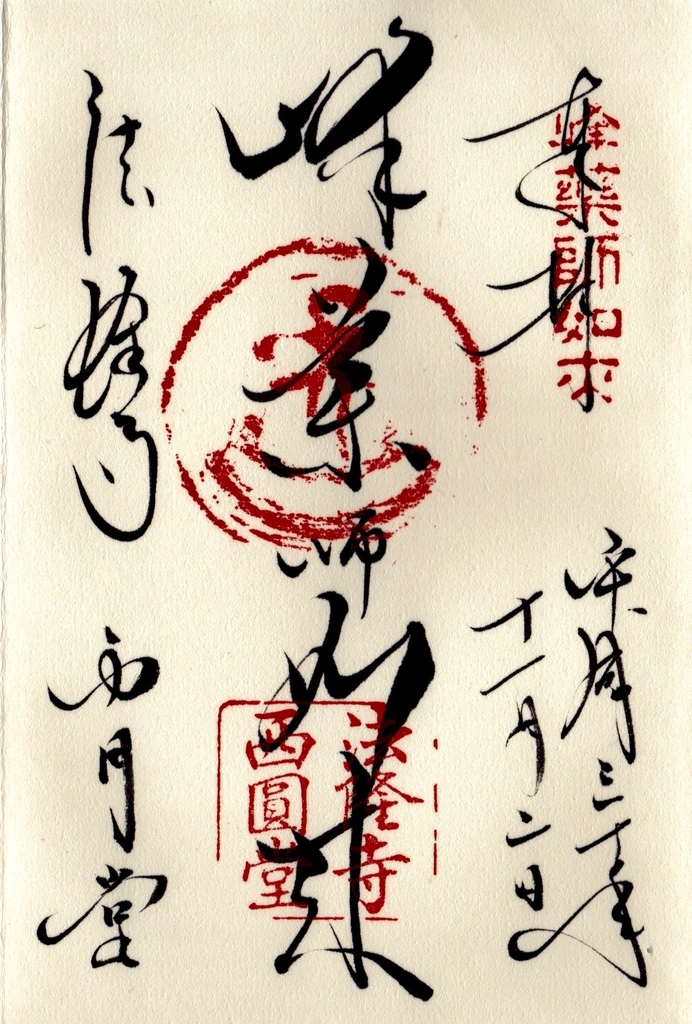 奉拝
峰薬師如来
平成三十年
十一月二日
峰薬師如来
法隆寺
西圓堂
法隆寺
西円堂